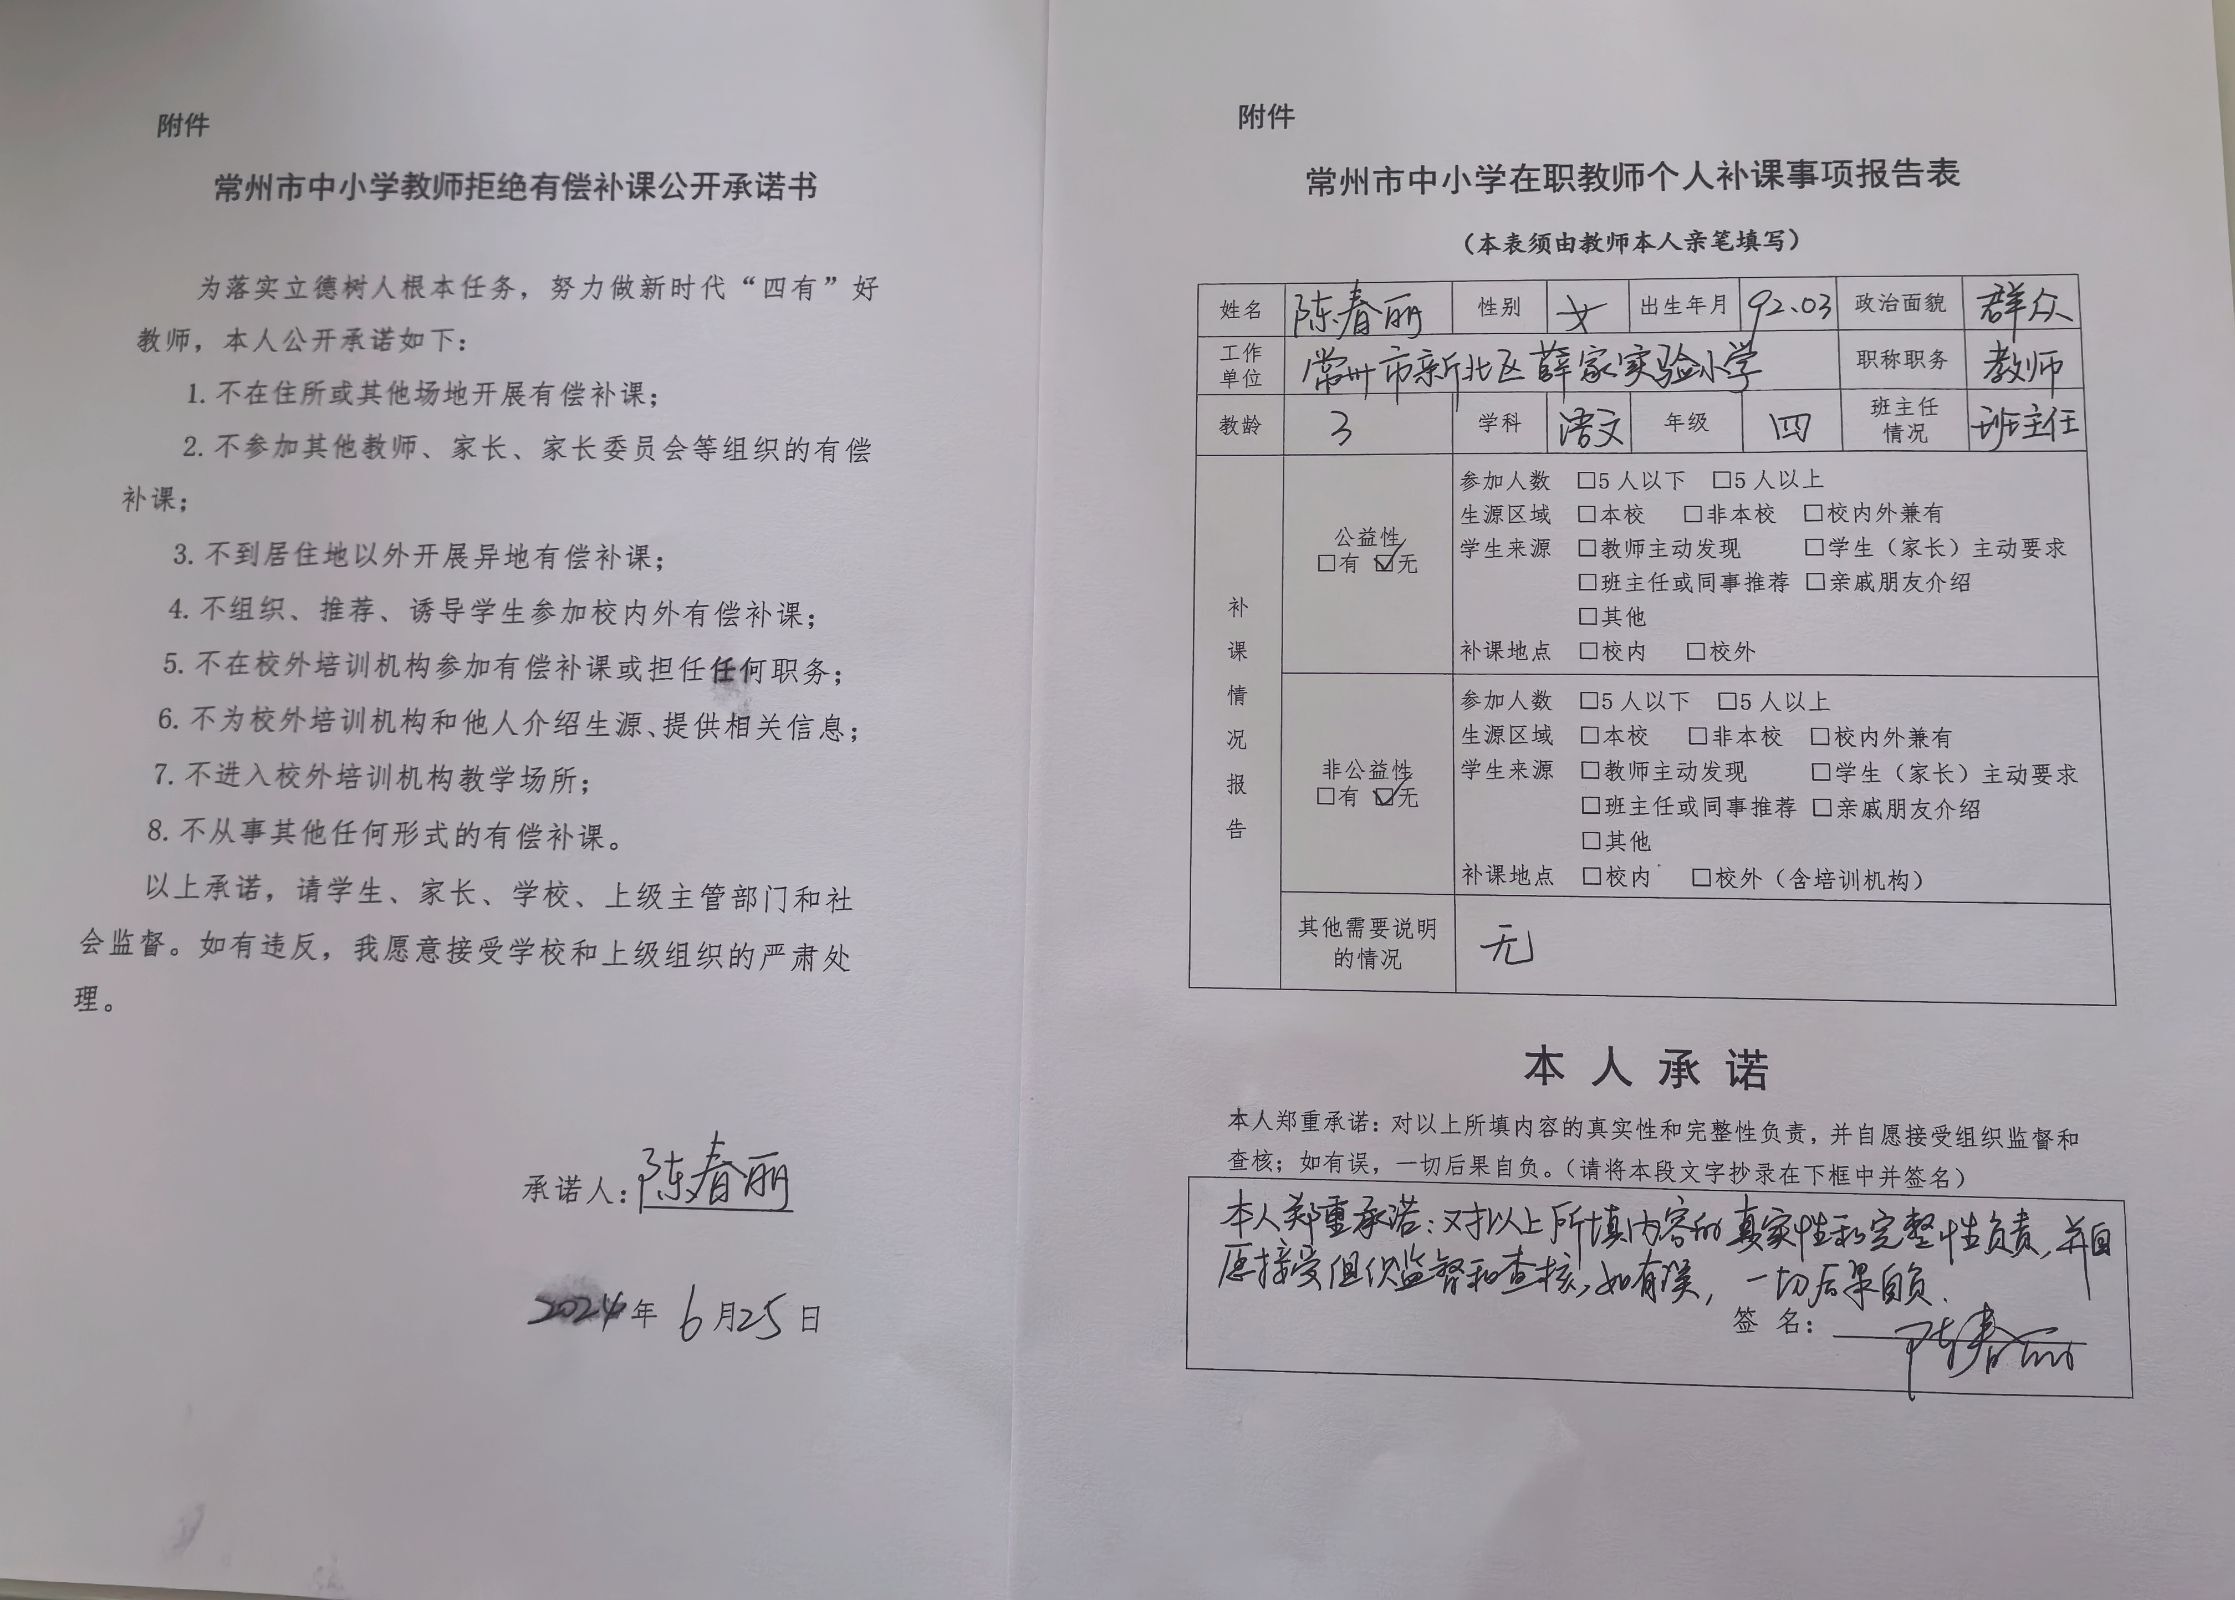 附件
常州市中小学教师拒绝有偿补课公开承诺书
为落实立德树人根本任务，努力做新时代“四有”好
教师，本人公开承诺如下：
1. 不在住所或其他场地开展有偿补课；
2. 不参加其他教师、家长、家长委员会等组织的有偿
补课；
3. 不到居住地以外开展异地有偿补课；
4. 不组织、推荐、诱导学生参加校内外有偿补课；
5. 不在校外培训机构参加有偿补课或担任任何职务；
6. 不为校外培训机构和他人介绍生源、提供相关信息；
7. 不进入校外培训机构教学场所；
8. 不从事其他任何形式的有偿补课。
以上承诺，请学生、家长、学校、上级主管部门和社
会监督。如有违反，我愿意接受学校和上级组织的严肃处
理。
承诺人：陈春丽
2024年 6月25日
附件
常州市中小学在职教师个人补课事项报告表
（本表须由教师本人亲笔填写）
姓名 陈春丽 性别 女 出生年月 92.03 政治面貌 群众
工作单位 常州市新北区薛家实验小学 职称职务 教师
教龄 3 学科 语文 年级 四 班主任情况 班主任
补课情况报告
公益性
□有 ☑无
参加人数 □5 人以下 □5 人以上
生源区域 □本校 □非本校 □校内外兼有
学生来源 □教师主动发现 □学生（家长）主动要求
□班主任或同事推荐 □亲戚朋友介绍
□其他
补课地点 □校内 □校外
非公益性
□有 ☑无
参加人数 □5 人以下 □5 人以上
生源区域 □本校 □非本校 □校内外兼有
学生来源 □教师主动发现 □学生（家长）主动要求
□班主任或同事推荐 □亲戚朋友介绍
□其他
补课地点 □校内 □校外（含培训机构）
其他需要说明
的情况
无
本 人 承 诺
本人郑重承诺：对以上所填内容的真实性和完整性负责，并自愿接受组织监督和
查核；如有误，一切后果自负。（请将本段文字抄录在下框中并签名）
本人郑重承诺：对以上所填内容的真实性和完整性负责，并自
愿接受组织监督和查核，如有误，一切后果自负．
签 名：陈春丽